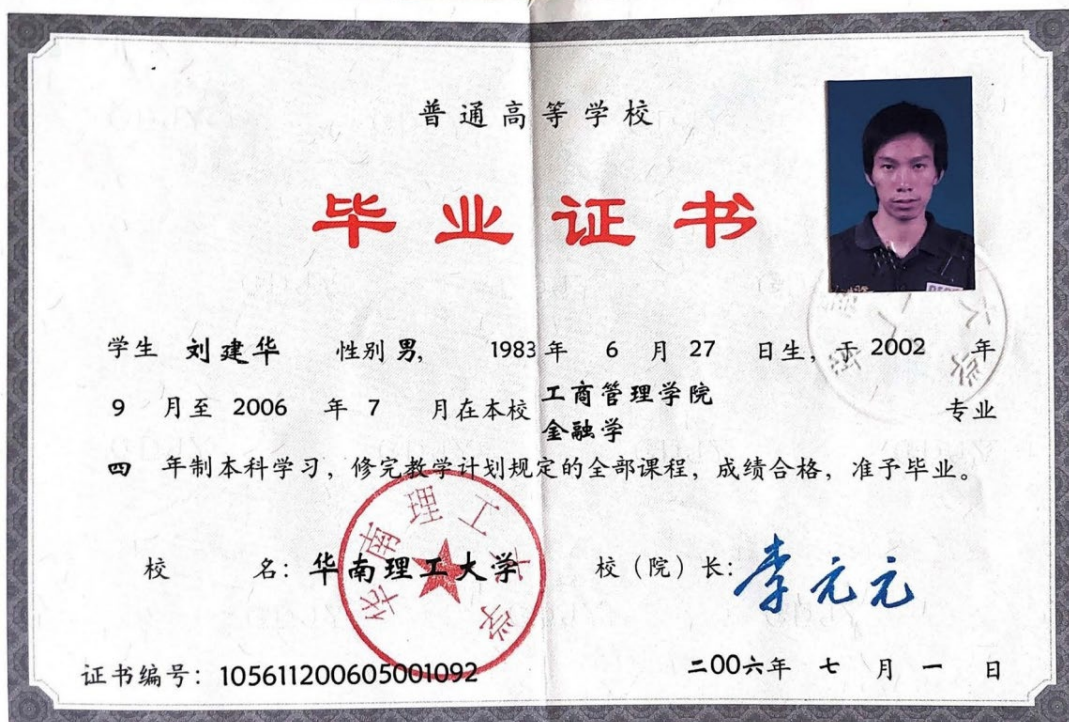 普通高等学校
毕业证书
学生 刘建华 性别 男, 1983 年 6 月 27 日生, 于 2002 年
9 月至 2006 年 7 月在本校 工商管理学院 金融学 专业
四 年制本科学习, 修完教学计划规定的全部课程, 成绩合格, 准予毕业。
校 名: 华南理工大学 校 (院) 长: 李元元
华南理工大学
证书编号: 105611200605001092 二00六年 七 月 一 日